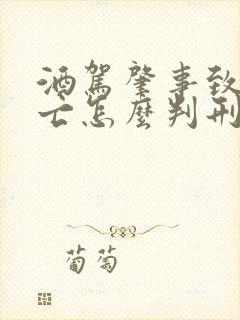 酒駕肇事致
亡怎麼判刑
葡萄